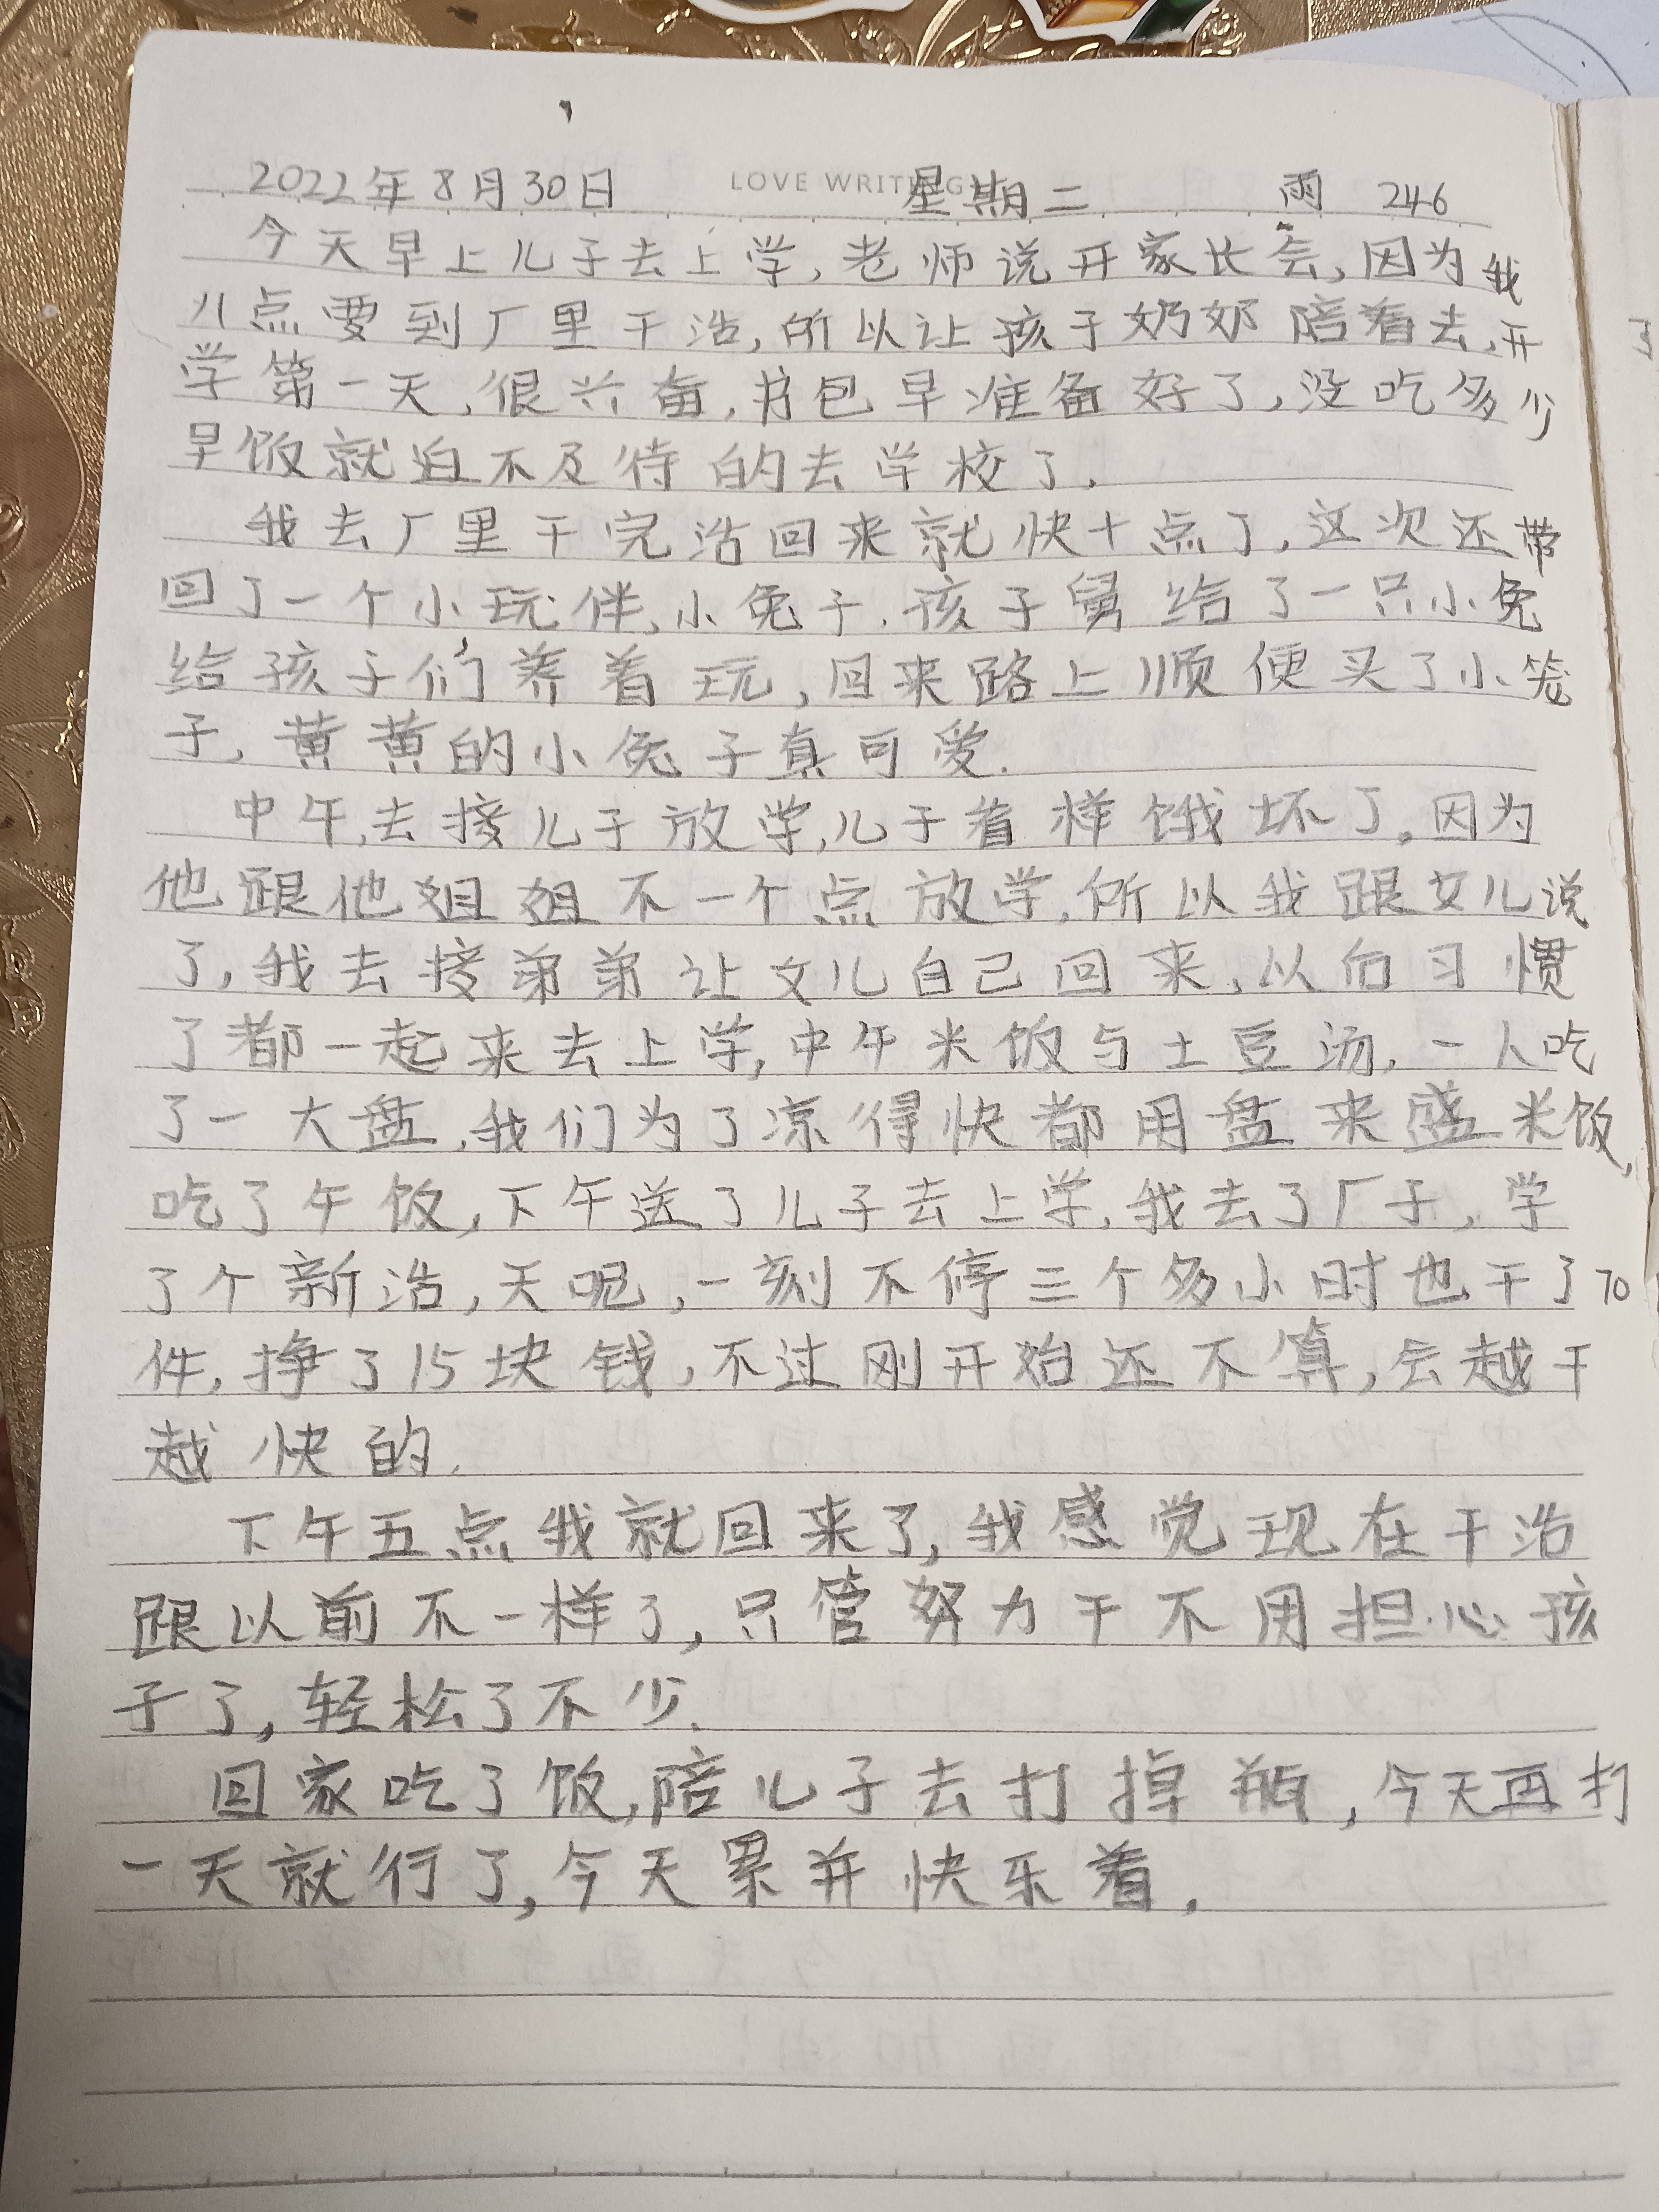 LOVE WRITING
2022年8月30日 星期二 雨 246
今天早上儿子去上学,老师说开家长会,因为我
八点要到厂里干活,所以让孩子奶奶陪着去,开
学第一天,很兴奋,书包早准备好了,没吃多少
早饭就迫不及待的去学校了.
我去厂里干完活回来就快十点了,这次还带
回了一个小玩伴,小兔子.孩子舅给了一只小兔
给孩子们养着玩,回来路上顺便买了小笼
子,黄黄的小兔子真可爱.
中午,去接儿子放学,儿子看样饿坏了。因为
他跟他姐姐不一个点放学,所以我跟女儿说
了,我去接弟弟让女儿自己回来,以后习惯
了都一起来去上学,中午米饭与土豆汤,一人吃
了一大盘,我们为了凉得快都用盘来盛米饭,
吃了午饭,下午送了儿子去上学,我去了厂子,学
了个新活,天呢,一刻不停三个多小时也干了70
件,挣了15块钱,不过刚开始还不算,会越干
越快的.
下午五点我就回来了,我感觉现在干活
跟以前不一样了,只管努力干不用担心孩
子了,轻松了不少.
回家吃了饭,陪儿子去打掉瓶,今天再打
一天就行了,今天累并快乐着.